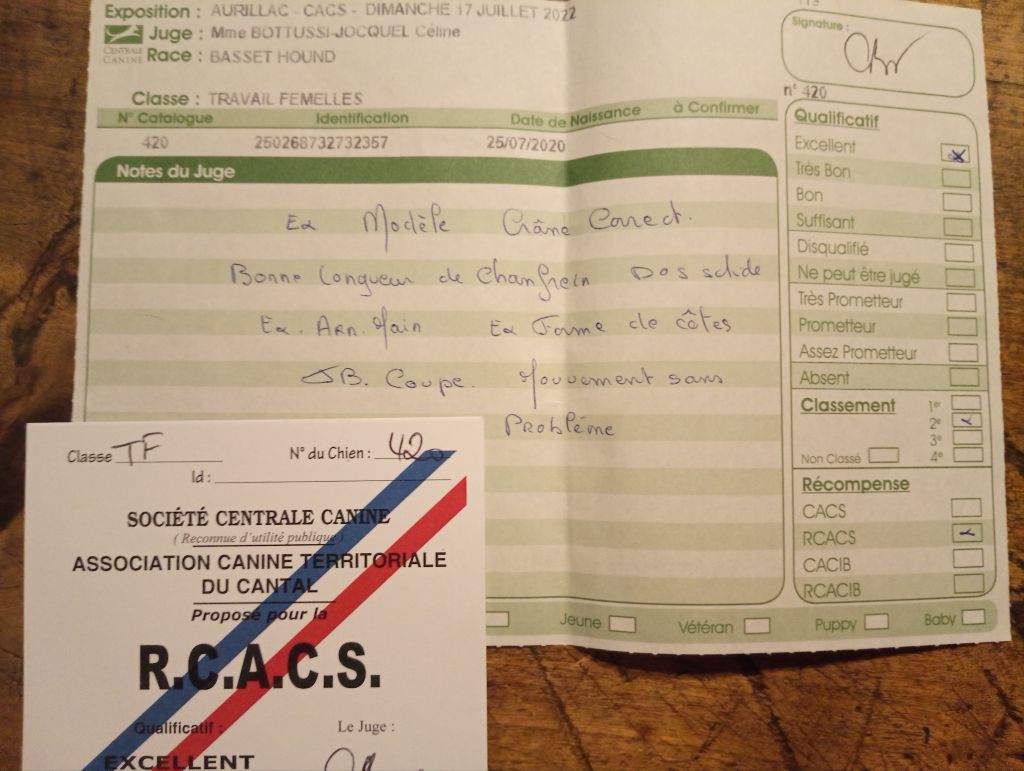 Exposition : AURILLAC - CACS - DIMANCHE 17 JUILLET 2022
Juge : Mme BOTTUSSI-JOCQUEL Céline
CENTRALE CANINE
Race : BASSET HOUND
Classe : TRAVAIL FEMELLES
N° Catalogue Identification Date de Naissance à Confirmer
420 250268732732357 25/07/2020
Notes du Juge
Ex Modèle Crâne Correct.
Bonne Longueur de Chanfrein Dos solide
Ex. Arn. Main Ex Forme de côtes
TB. Coupe. Mouvement sans
Problème
Signature :
n° 420
Qualificatif
Excellent
Très Bon
Bon
Suffisant
Disqualifié
Ne peut être jugé
Très Prometteur
Prometteur
Assez Prometteur
Absent
Classement
1er
2e
3e
Non Classé 4e
Récompense
CACS
RCACS
CACIB
RCACIB
Jeune Vétéran Puppy Baby
Classe TF N° du Chien : 420
Id :
SOCIÉTÉ CENTRALE CANINE
( Reconnue d'utilité publique )
ASSOCIATION CANINE TERRITORIALE
DU CANTAL
Propose pour la
R.C.A.C.S.
Qualificatif : Le Juge :
EXCELLENT